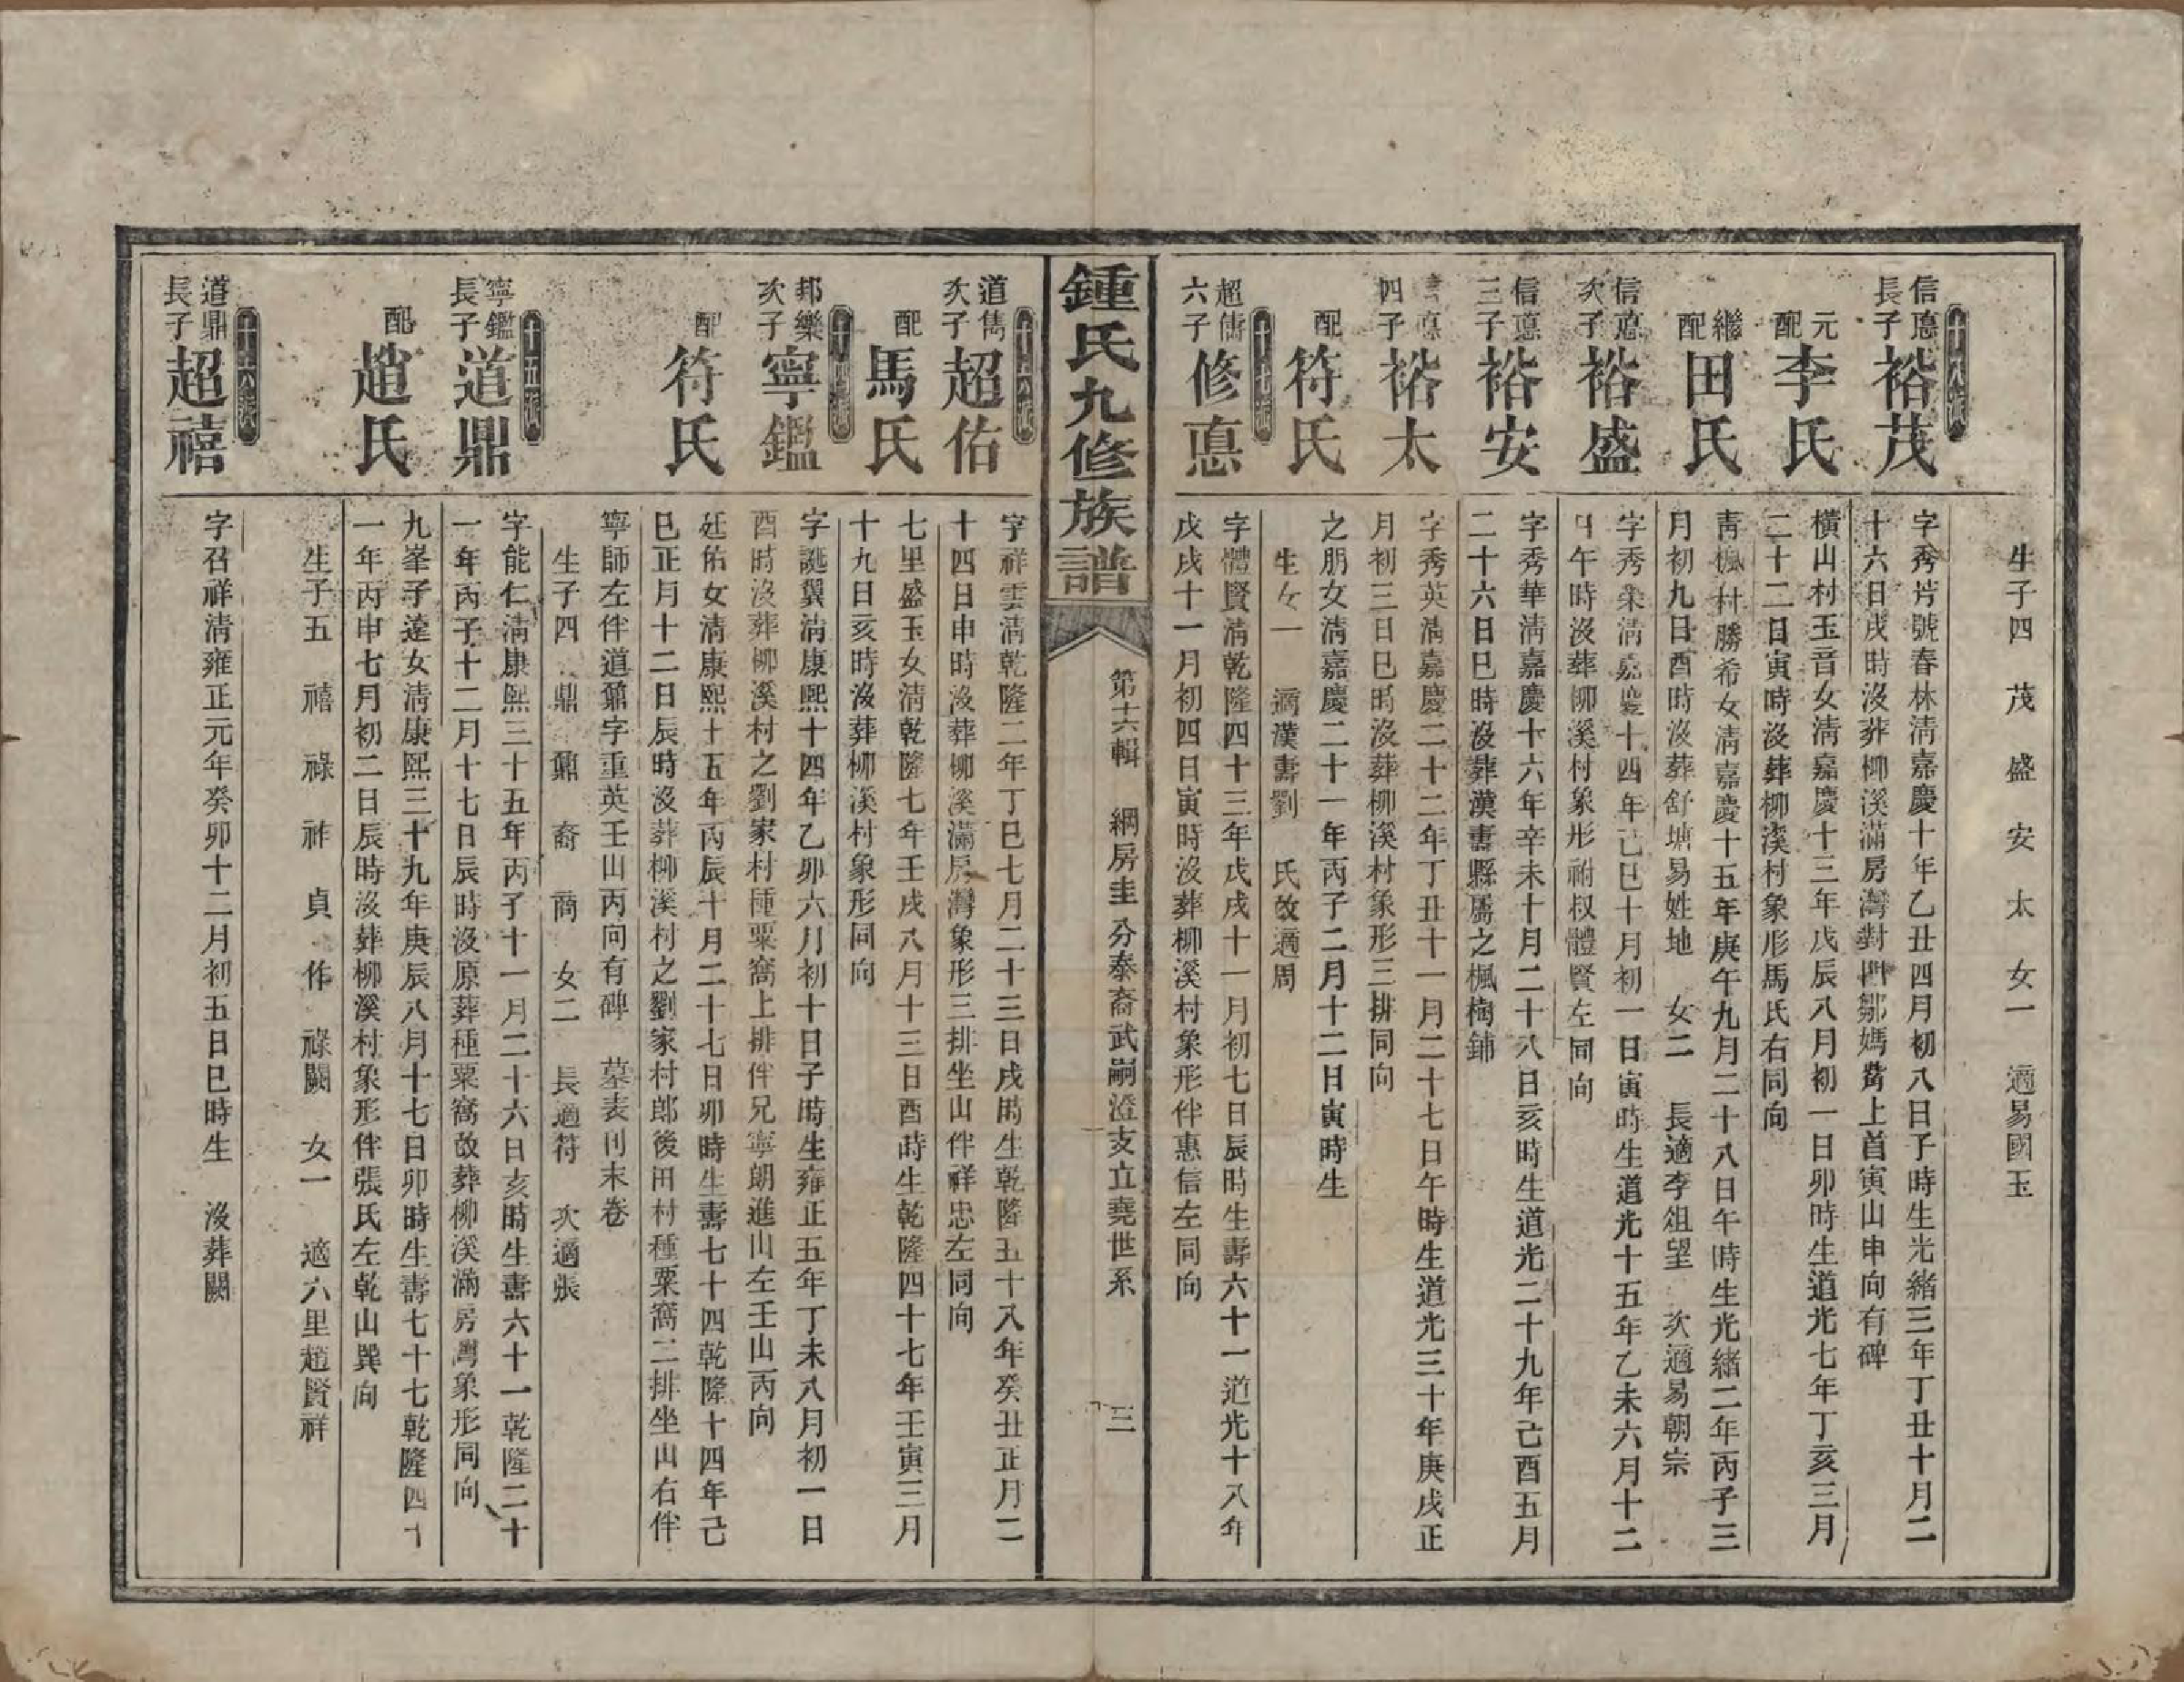 生子四 茂 盛 安 太 女一 適易國玉
十八派
信悳長子 裕茂
字秀芳號春林清嘉慶十年乙丑四月初八日子時生光緒三年丁丑十月二
十六日戌時沒葬柳溪滿房灣對門鄒媽觜上首寅山申向有碑
元配 李氏
橫山村玉音女清嘉慶十三年戊辰八月初一日卯時生道光七年丁亥三月
二十二日寅時沒葬柳溪村象形馬氏右同向
繼配 田氏
青楓村勝希女清嘉慶十五年庚午九月二十八日午時生光緒二年丙子三
月初九日酉時沒葬舒塘易姓地 女二 長適李俎望 次適易朝宗
信悳次子 裕盛
字秀榮清嘉慶十四年己巳十月初一日寅時生道光十五年乙未六月十二
日午時沒葬柳溪村象形祔叔體賢左同向
信悳三子 裕安
字秀華清嘉慶十六年辛未十月二十八日亥時生道光二十九年己酉五月
二十六日巳時沒葬漢壽縣屬之楓樹鋪
信悳四子 裕太
字秀英清嘉慶二十二年丁丑十一月二十七日午時生道光三十年庚戌正
月初三日巳時沒葬柳溪村象形三排同向
配 符氏
之朋女清嘉慶二十一年丙子二月十二日寅時生
生女一 適漢壽劉 氏改適周
十七派
超儔六子 修悳
字體賢清乾隆四十三年戊戌十一月初七日辰時生壽六十一道光十八年
戊戌十一月初四日寅時沒葬柳溪村象形伴惠信左同向
鍾氏九修族譜
第十六輯 綱房圭分泰裔武嗣澄支立堯世系
三
十六派
道雋次子 超佑
字祥雲清乾隆二年丁巳七月二十三日戌時生乾隆五十八年癸丑正月二
十四日申時沒葬柳溪滿房灣象形三排坐山伴祥忠左同向
配 馬氏
七里盛玉女清乾隆七年壬戌八月十三日酉時生乾隆四十七年壬寅三月
十九日亥時沒葬柳溪村象形同向
十四派
邦樂次子 寧鑑
字誕翼清康熙十四年乙卯六月初十日子時生雍正五年丁未八月初一日
酉時沒葬柳溪村之劉家村種粟窩上排伴兄寧朗進山左壬山丙向
配 符氏
廷佑女清康熙十五年丙辰十月二十七日卯時生壽七十四乾隆十四年己
巳正月十二日辰時沒葬柳溪村之劉家村郎後田村種粟窩二排坐山右伴
寧師左伴道鼐字重英壬山丙向有碑 墓表刊末卷
生子四 鼎 鼐 裔 商 女二 長適符 次適張
十五派
寧鑑長子 道鼎
字能仁清康熙三十五年丙子十一月二十六日亥時生壽六十一乾隆二十
一年丙子十二月十七日辰時沒原葬種粟窩改葬柳溪滿房灣象形同向
配 趙氏
九峯子達女清康熙三十九年庚辰八月十七日卯時生壽七十七乾隆四十
一年丙申七月初二日辰時沒葬柳溪村象形伴張氏左乾山巽向
生子五 禧 祿 祚 貞 作 祿闕 女一 適六里趙賢祥
十六派
道鼎長子 超禧
字召祥清雍正元年癸卯十二月初五日巳時生 沒葬闕